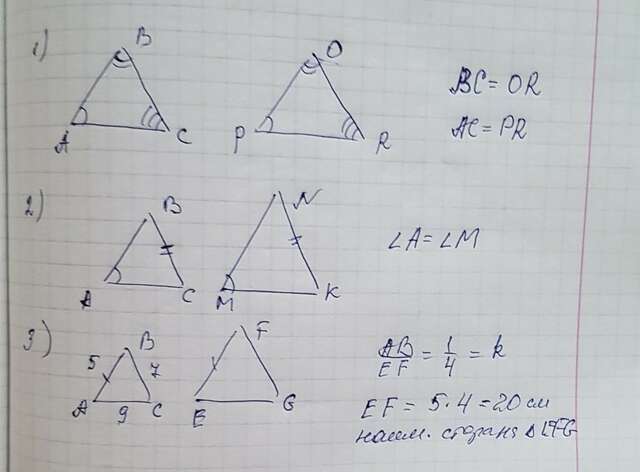 1)
B
A
C
O
P
R
BC = OR
AC = PR
2)
B
A
C
N
M
K
∠A = ∠M
3)
B
5
7
A
9
C
F
E
G
AB/EF = 1/4 = k
EF = 5·4 = 20 см
наим. сторона Δ EFG